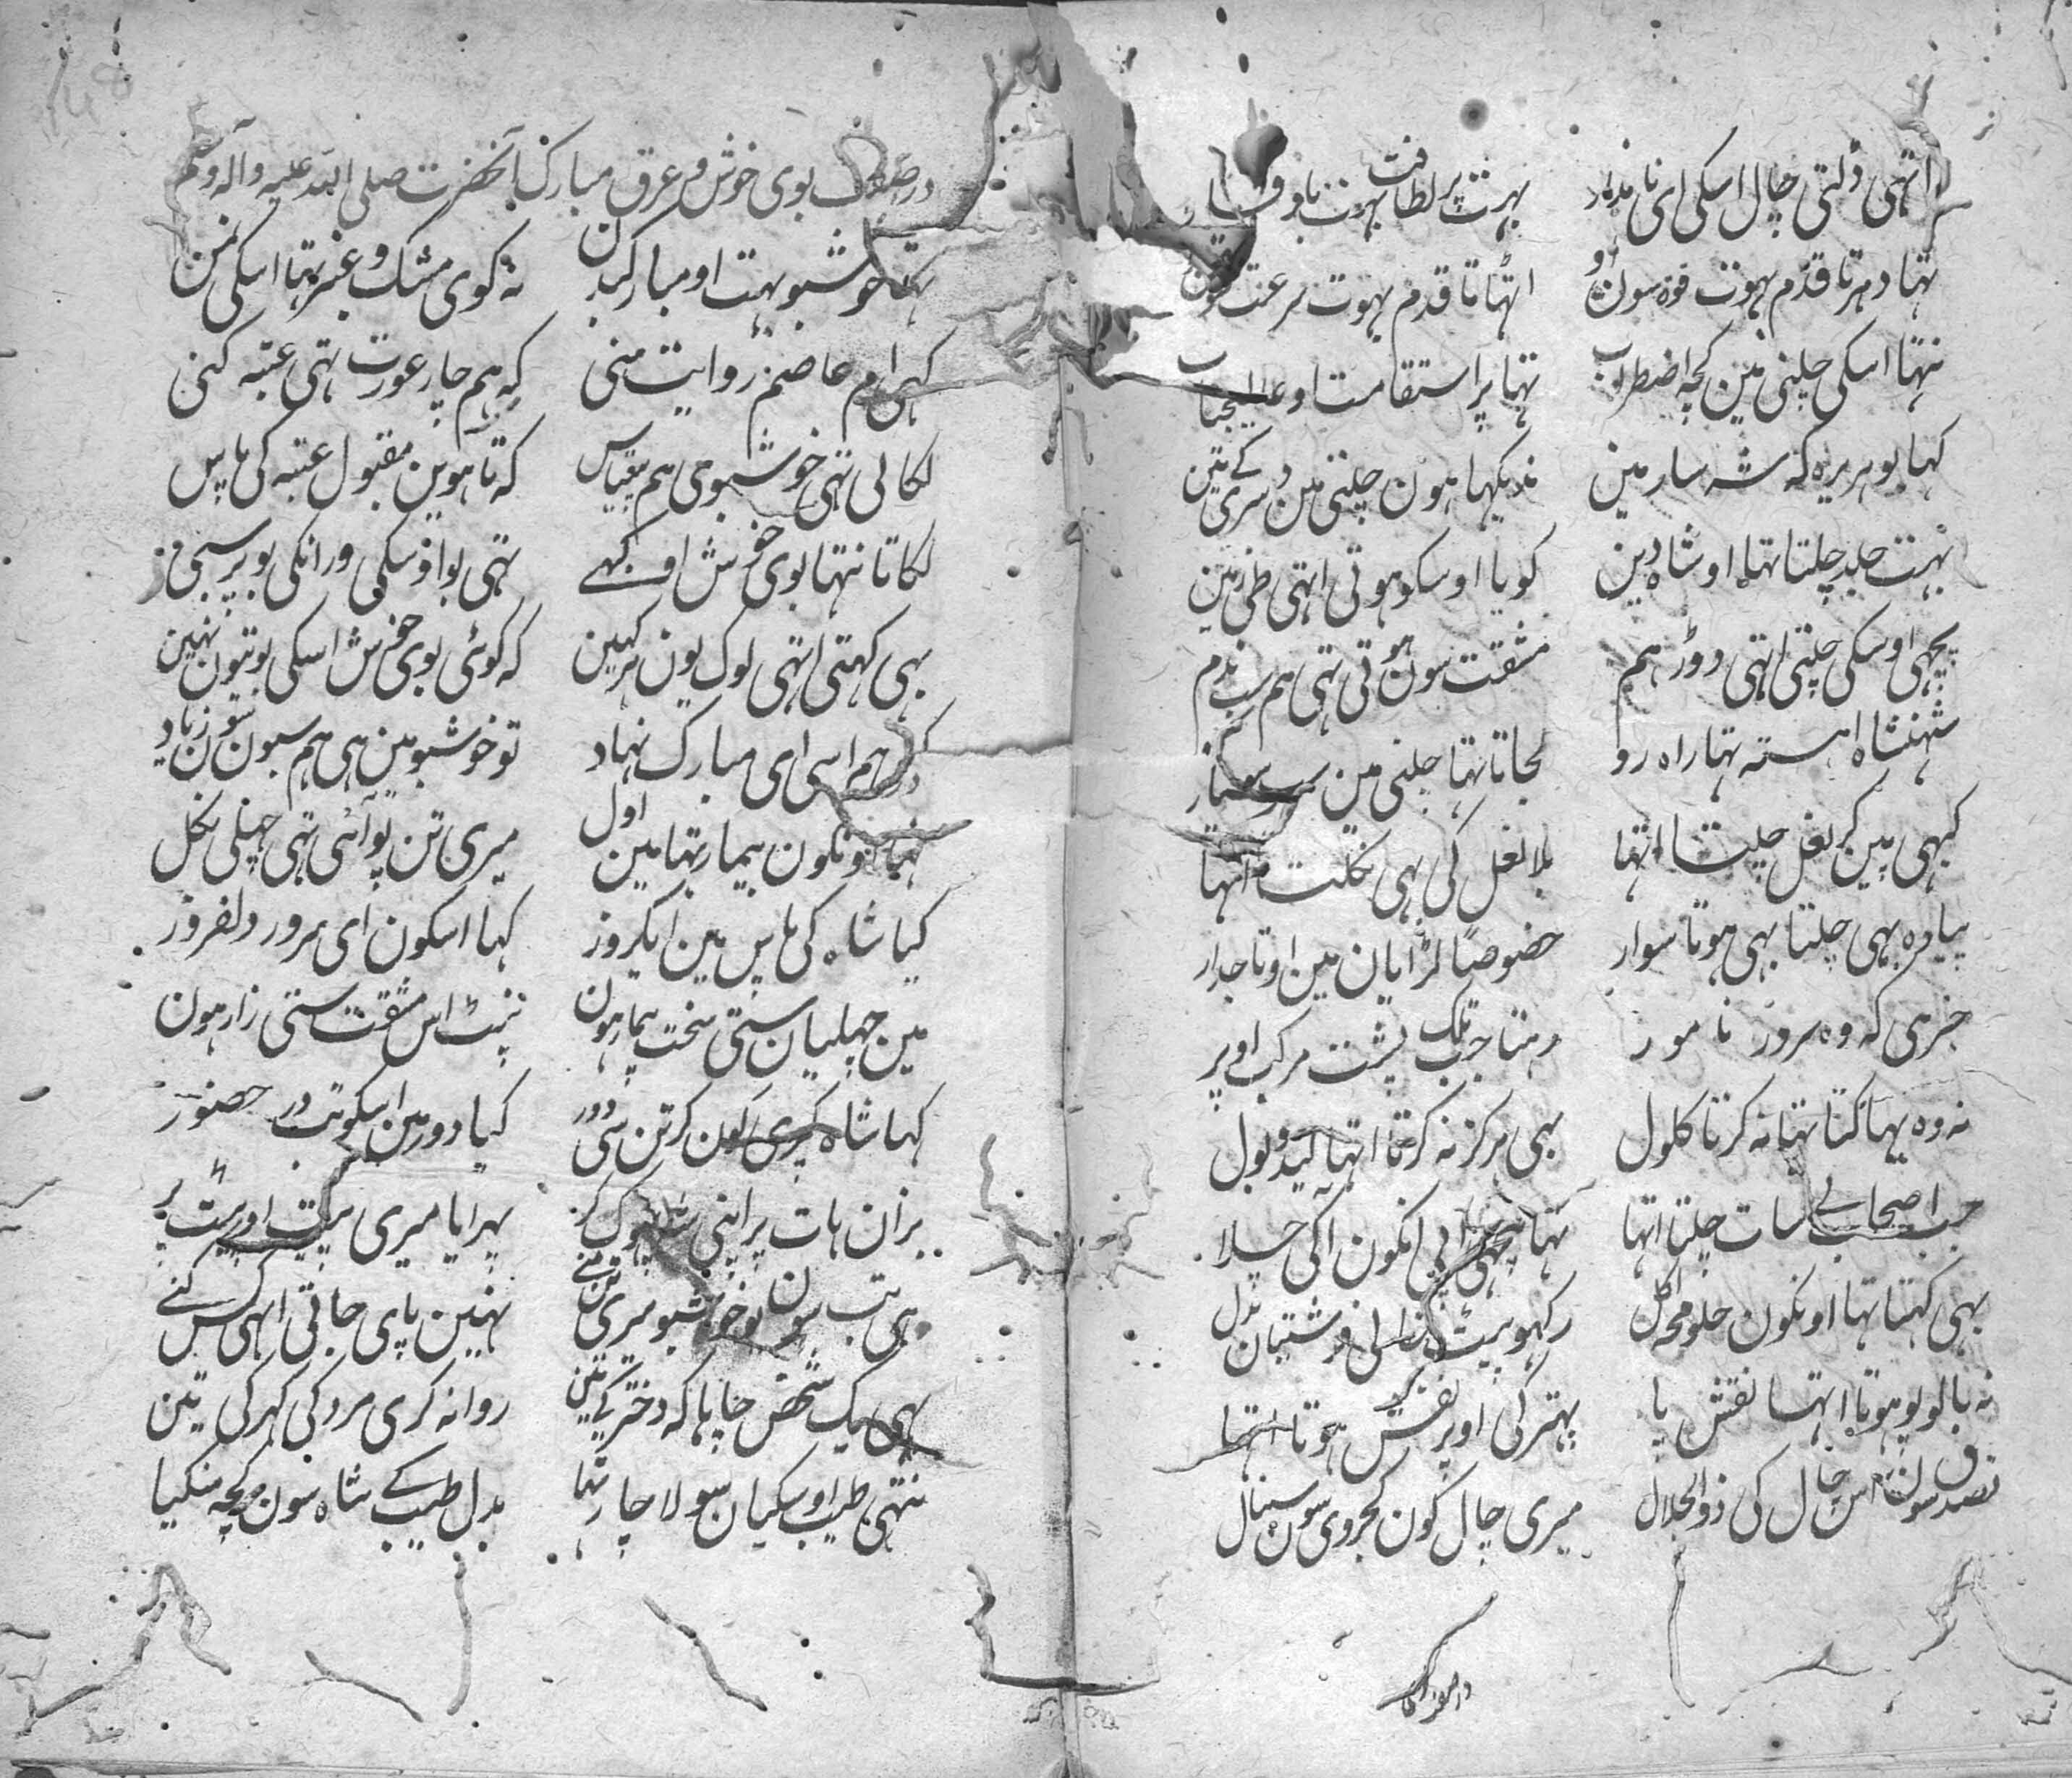 اتهی ڈلتی چال اسکی ای نامدار بہت پر لطافت بہوت باوقار
تہا دہرتا قدم بہوت قوہ سون او اٹہاتا قدم بہوت سرعت سون
نتہا اسکی چلنی مین کچہ اضطراب تہا پر استقامت او عالیجناب
کہا بوہریرہ کہ شہ سار مین ندیکہا ہون چلنی مین دسری کے تین
بہت جلد چلتا تہا او شاہ دین کویا اوسکو ہوتی اتہی طی زمین
پچہی اوسکی چلتی اتہی دوڑ ہم مشقت سون ہوتی تہی ہم سب ندم
شہنشاہ اہستہ تہا راہ رو لجاتا تہا چلنی مین سب سون
کبہی پین کر نعل چلتا اتہا بلا نعل کی بہی نکلتا اتہا
پیادہ بہی چلتا بہی ہوتا سوار خصوصاً لڑایان مین او تاجدار
خبر ہی کہ وہ سرور نامور رہتا جب تلک پشت مرکب اوپر
نہ وہ بہاکتا تہا نہ کرتا کلول بہی ہرکز نہ کرتا اتہا لید و بول
جب اصحاب لی سات چلتا اتہا تہا پیچہی انکون آکی چلا
بہی کہتا تہا اونکون چلو مجہ اکل رکہو پیٹ خالی فرشتیان بدل
نہ بالو پو ہوتا اتہا نقش پا پہتر کی اوپر نقش ہوتا اتہا
تصدق سون اس چال کی ذوالجلال میری چال کون کجروی سون سنبال
در صفت بوی خوش و عرق مبارک آنحضرت صلی اللہ علیہ وآلہ وسلم
تہا خوشبو بہت او مبارک بدن نہ کوی مشک و عنبر تہا اسکی نمن
کہی ام عاصم روایت منی کہ ہم چار عورت تہی عتبہ کنی
لکالی تہی خوشبوی ہم بیقیاس کہ تا ہوین مقبول عتبہ کی پاس
لکاتا نتہا بوی خوش او کبہے تہی بو اوسکی ور انکی بو پر سبہی
بہی کہتی اتہی لوک یون ہر کہین کہ کوئی بوی خوش اسکی بو تیون نہین
ہم اسی ای مبارک نہاد تو خوشبو مین ہی ہم سبون سون زیاد
کہا اونکون بیمار تہا مین اول میری تن پو آئی تہی چہلی نکل
کیا شاہ کی پاس مین ایکروز کہا اسکون ای سرور دلفروز
مین چہلیان ستی سخت بیمار ہون نپٹ اس مشقت ستی زار ہون
کہا شاہ کپری کون کر تن سی دور کیا دور مین اسکو تب در حضور
بزان ہات پر اپنی تہوک کر پہرایا میری پیٹ اور پیٹ پر
ہی تب سون یو خوشبو میری تن منے نہین پای جاتی اتہی کس کنے
بہی یک شخص چاہا کہ دختر کے تین روانہ کری مرد کی کہر کی تین
نتہی طیب اوسکیان سو لاچار تہا بدل طیب کے شاہ سون کچہ منکیا